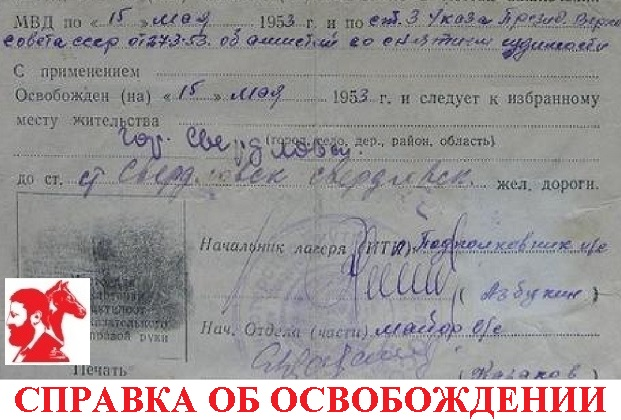 МВД по «15» мая 1953 г. и по ст. 3 Указа Презид. Верхн
совета ссср от 27 3-53. об амнистии со снятием судимости
С применением
Освобожден (на) «15» мая 1953 г. и следует к избранному
месту жительства
гор. Свердловск.
(город, село, дер., район, область)
до ст. ст Свердловск свердловск. жел. дороги.
Начальник лагеря (ИТК) Подполковник и/с
(Азбукин)
Нач. Отдела (части) майор и/с
Печать
(Казаков
правой руки
СПРАВКА ОБ ОСВОБОЖДЕНИИ